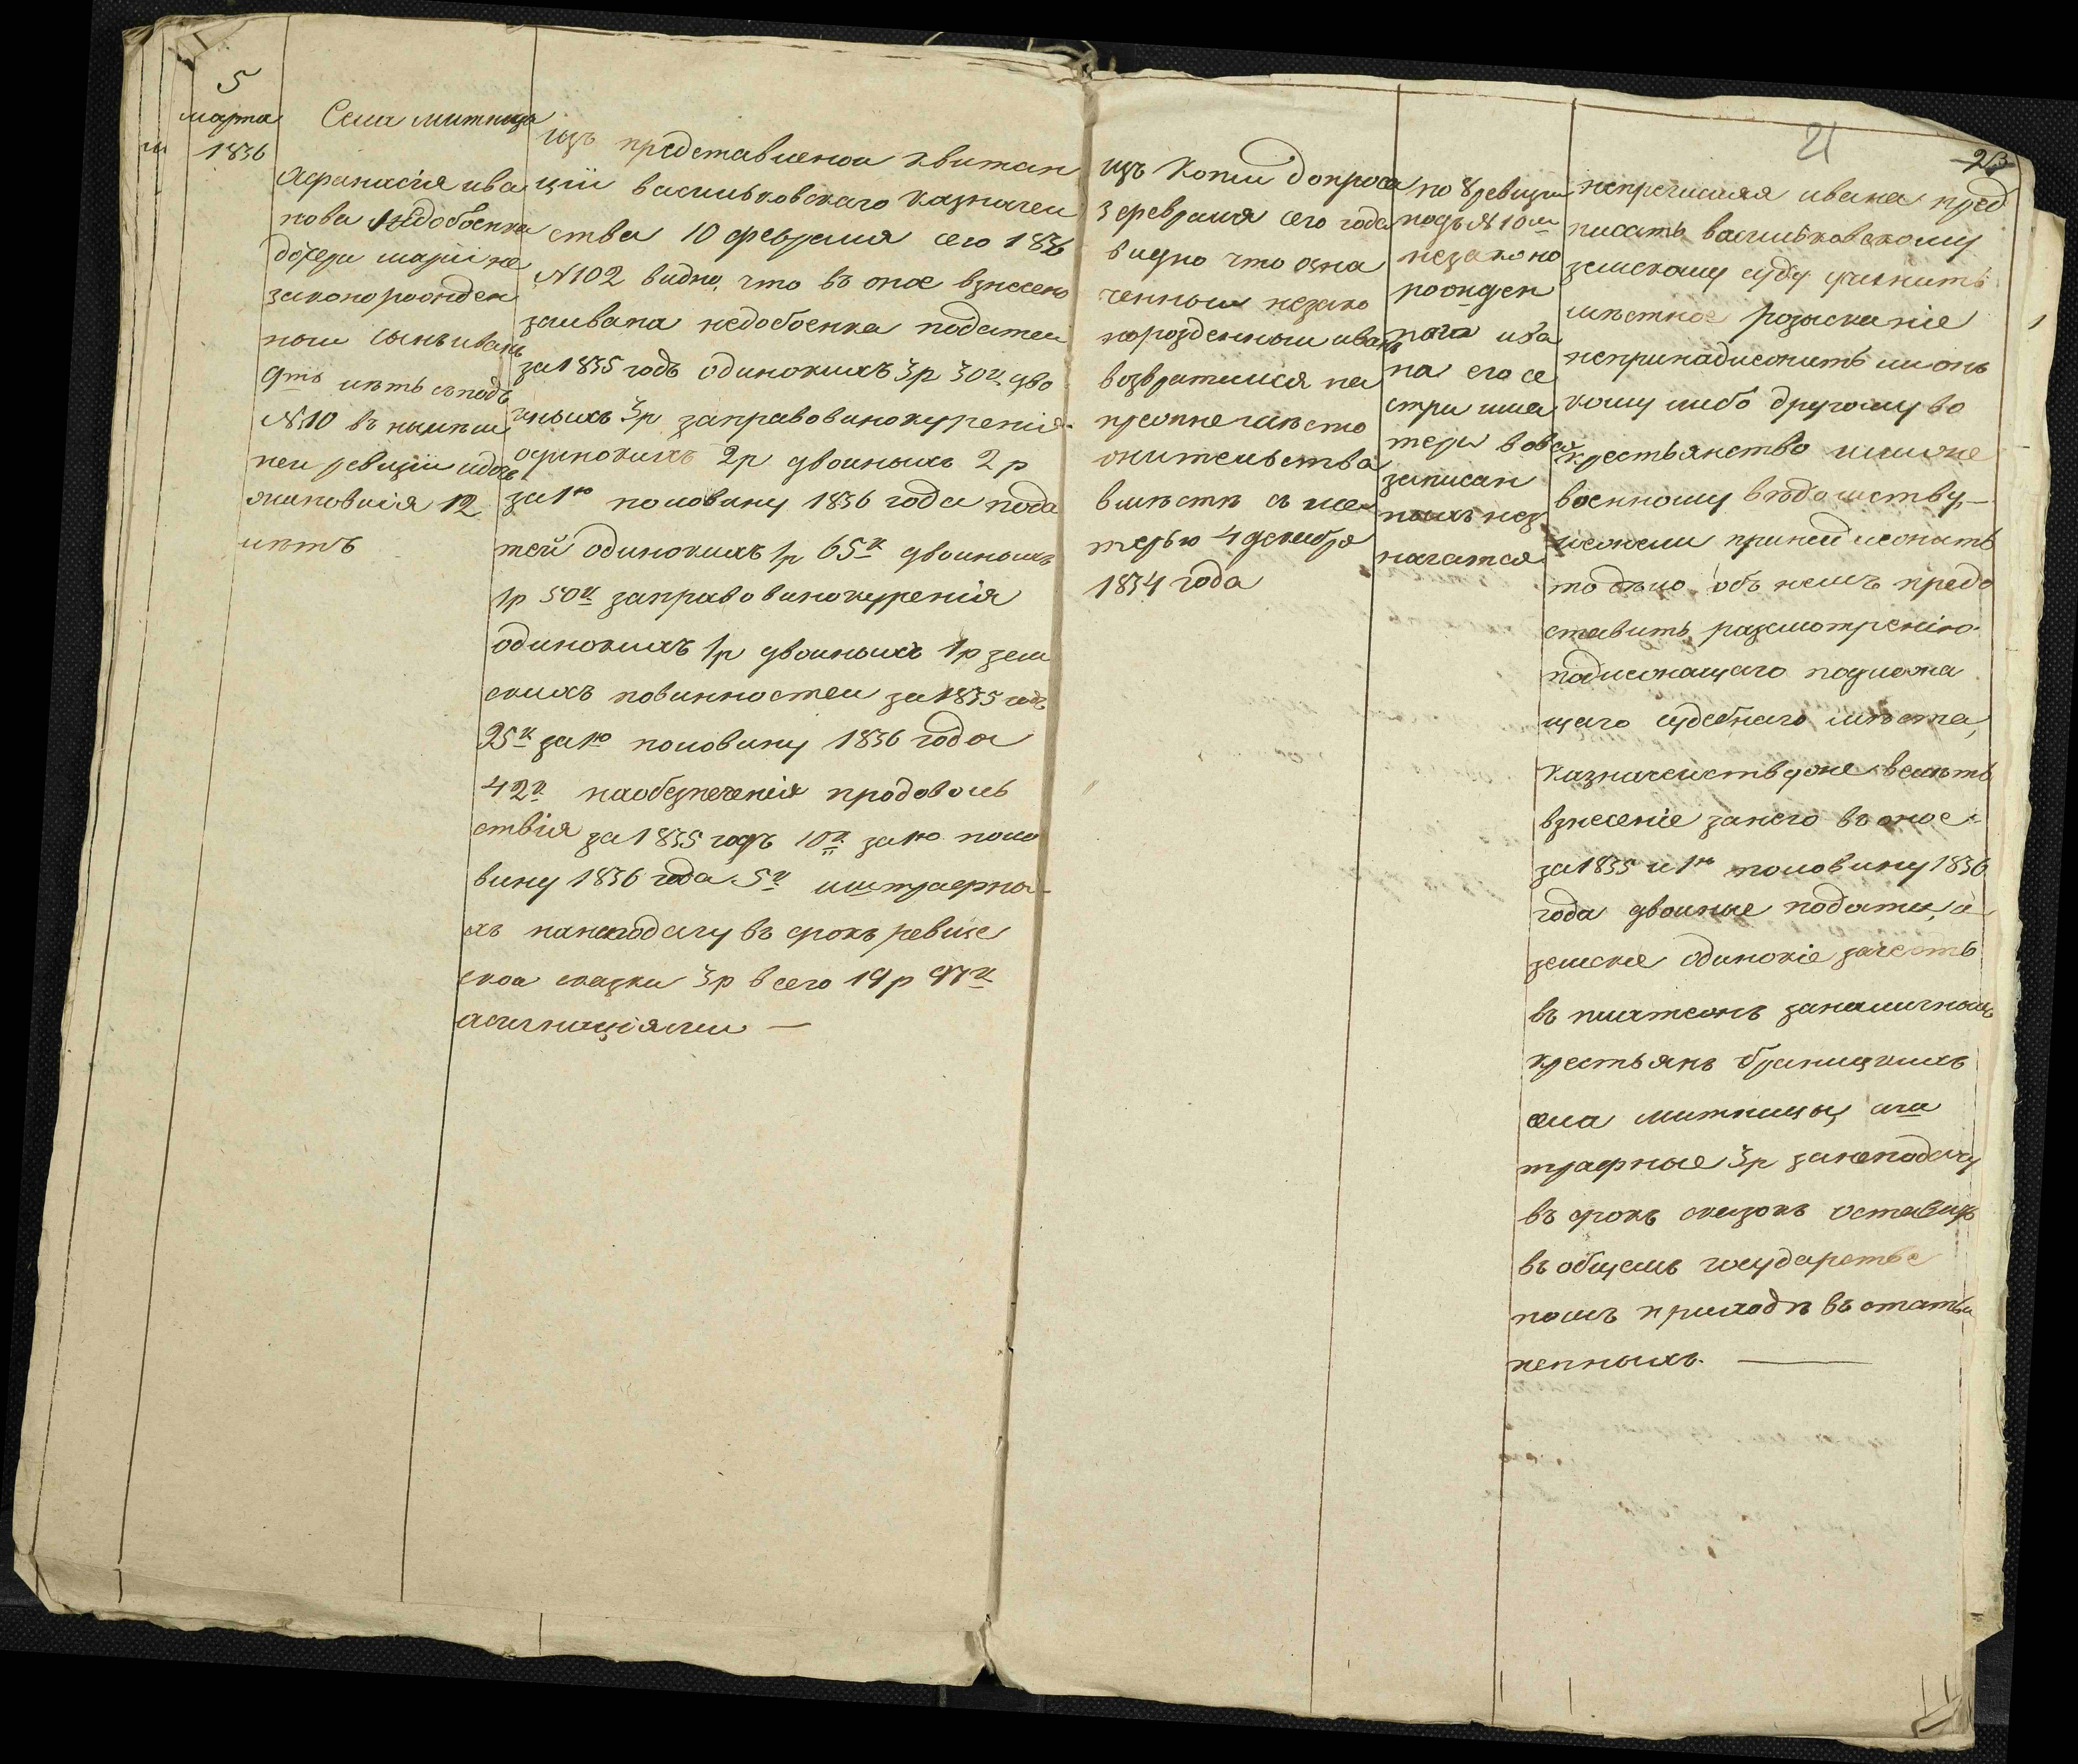 5
марта
1836
Села митница
Афанасія ива
нова недобоенка
дочери маріи не
законорожден
ной сынъ иванъ
9ть летъ съ подъ
№10 въ нынеш
ней ревизіи идочь
12
летъ
изъ представленои квитан
ціи васильковскаго казначеи
ства 10 февраля сего 1836
№102 видно, что въ оное взнесено
заивана недобоенка податеи
за1835 годъ одинокихъ 3р 30к дво
иныхъ 3р заправовинокуренія
одинокихъ 2р двоиныхъ 2р
за1ю половину 1836 года пода
тей одинокихъ 1р 65к двоиныхъ
1р 50к заправовинокуренія
одинокихъ 1р двоиныхъ 1р зем
скихъ повинностеи за1835 годъ
25к за1ю половину 1836 года
42к наобезпеченія продоволь
ствія за1835 годъ 10к за1ю поло
вину 1836 года 5к иштрафны
хъ нанеподачу въ срокъ ревизс
скои сказки 3р всего 19р 97к
асигнаціями —
изъ Копіи допроса
3 февраля сего года
видно что озна
ченныи незако
норозденныи иванъ
возвратился на
прежнее место
жительства
вместе съ ма
терью 4 декабря
1834 года
по 8 ревизіи
подъ №10м
незаконо
рожден
наго ива
на его се
стри има
тери вовсе
записан
ныхъ не
начится
21
23
непречисляя ивана пред
писать васильковскому
земскому суду учинить
местное розысканіе
непринадлежитъ лионъ
кому либо другому во
крестьянство илиже
военному ведомству —
иежели принадлежитъ
тодело объ немъ предо
ставить разсмотренію
подлежащаго подлежа
щаго судебнаго места,
казначеиствуже велеть
взнесеніе занего въ оное
за1835 и1ю половину 1836
года двоиные подати, а
земскіе одинокіе зачесть
въ платежъ заналичныхъ
крестьянъ браницкихъ
села митницы, аш
трафные 3р занеподачу
въ срокъ сказокъ оставить
въ общемъ государстве
номъ приходе въ статьи
пенныхъ. —